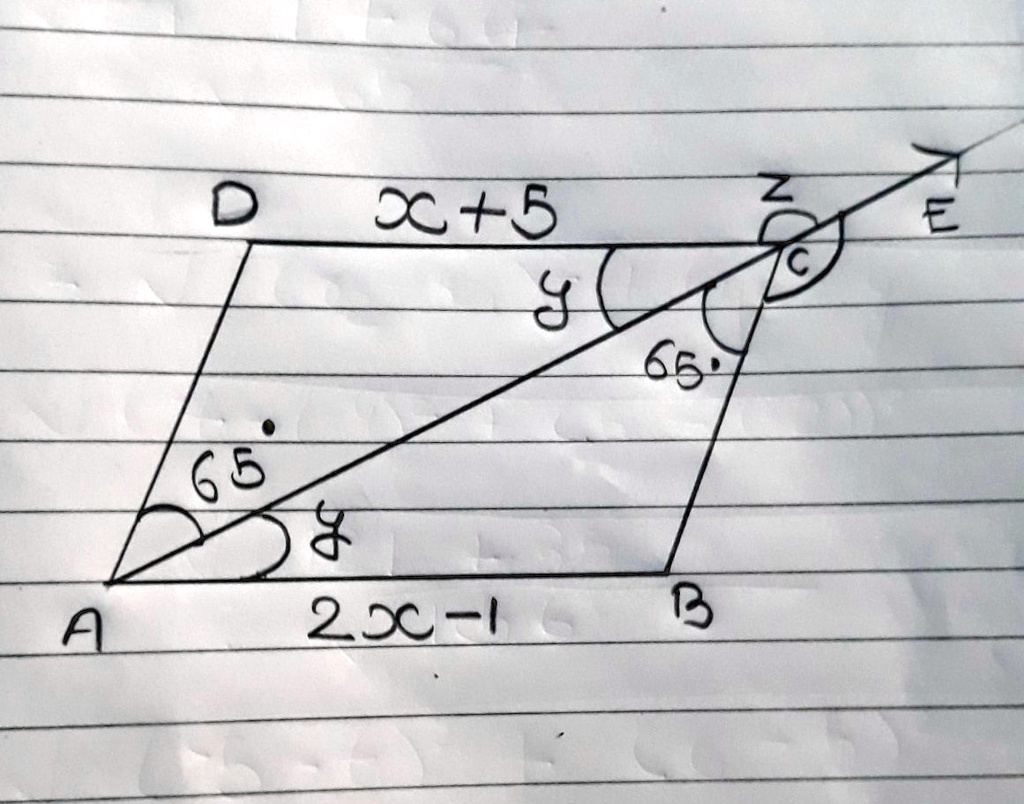 D x+5 Z E
C
y
65°
65°
y
A 2x-1 B